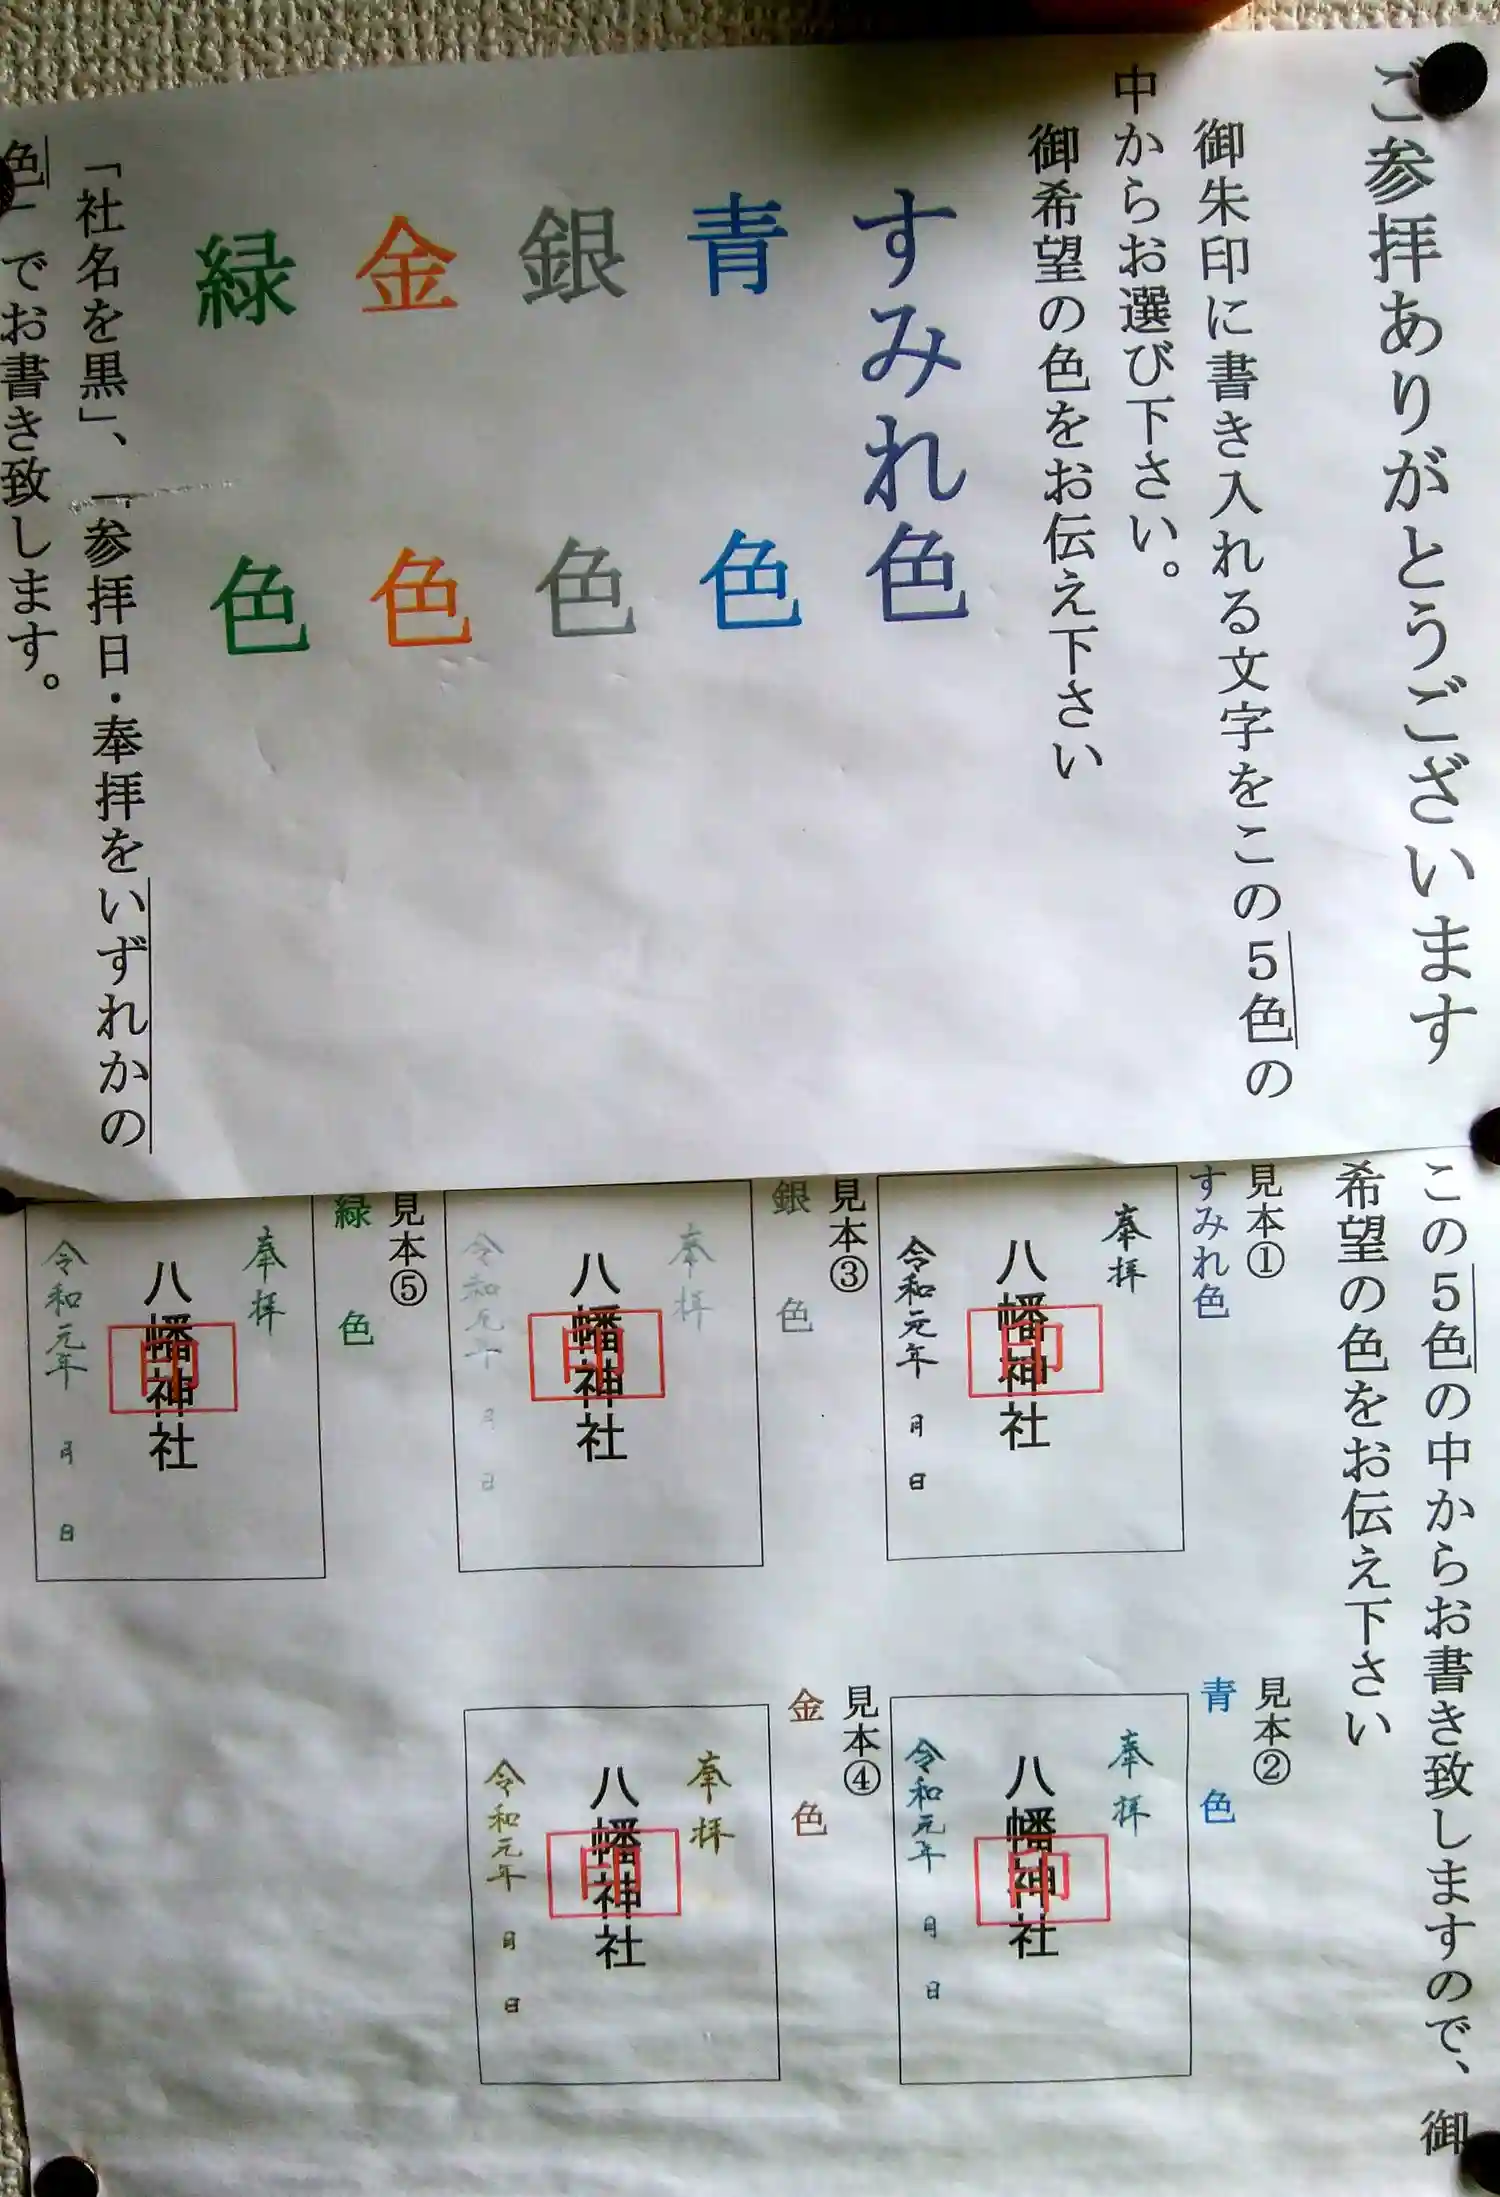 ご参拝ありがとうございます
御朱印に書き入れる文字をこの5色の
中からお選び下さい。
御希望の色をお伝え下さい
すみれ色
青色
銀色
金色
緑色
「社名を黒」、「参拝日・奉拝をいずれかの
色」でお書き致します。
この5色の中からお書き致しますので、御
希望の色をお伝え下さい
見本①
すみれ色
奉拝
八幡神社
印
令和元年 月 日
見本②
青色
奉拝
八幡神社
印
令和元年 月 日
見本③
銀色
奉拝
八幡神社
印
令和元年 月 日
見本④
金色
奉拝
八幡神社
印
令和元年 月 日
見本⑤
緑色
奉拝
八幡神社
印
令和元年 月 日